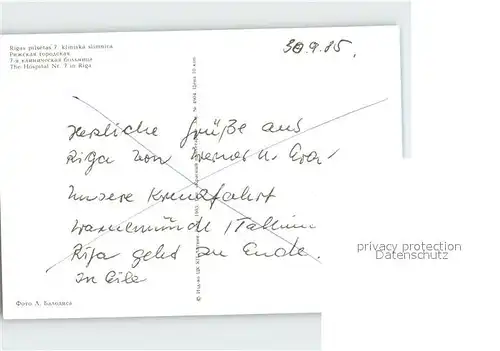 Rīgas pilsētas 7. klīniskā slimnīca
Рижская городская
7-я клиническая больница
The Hospital Nr. 7 in Riga
30.9.85.
Herzliche Grüße aus
Riga von Werner u. Eva.
Unsere Kreuzfahrt
Warnemünde / Tallinn
Riga geht zu Ende.
In Eile
privacy protection
Datenschutz
Фото Л. Балодиса